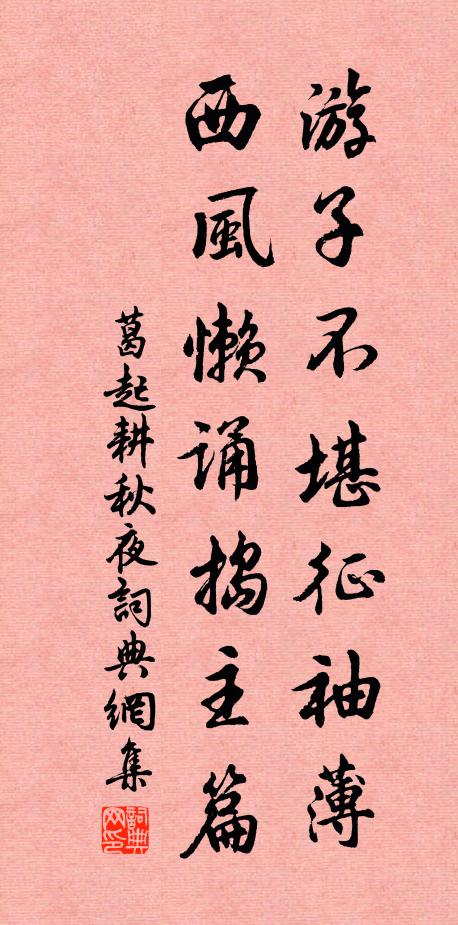 游子不堪征袖薄
西風懶誦搗主篇
葛起耕秋夜詞典網集
詞典網印